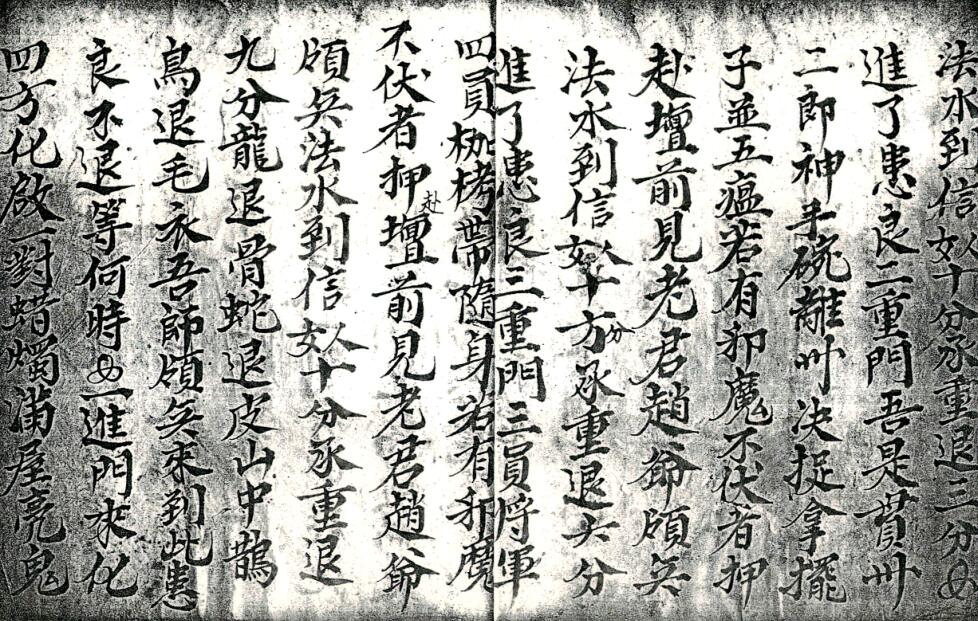 法水到信女人十分承重退三分
進了患良二重門吾是貫州
二郎神手碗離州决捉拿擺
子並五瘟若有邪魔不伏者押
赴壇前見老君趙爺領兵
法水到信女人十方分承重退六分
進了患良三重門三員將軍
四員枷栲帶隨身若有邪魔
不伏者押赴壇前見老君趙爺
領兵法水到信女人十分承重退
九分龍退骨蛇退皮山中鵲
鳥退毛衣吾師領兵來到此患
良不退等何時一進門來化
四方化啟一對蜡燭滿屋亮鬼